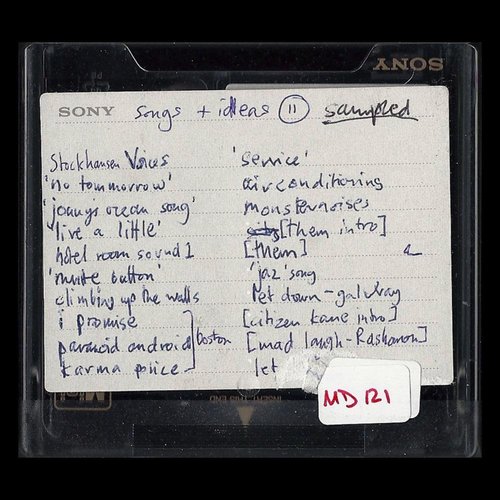 SONY
SONY songs + ideas 11 sampled
Stockhausen Voices
'no tommorrow'
'jonny's ocean song'
'live a little'
hotel room sound 1
'mute button'
climbing up the walls
i promise
paranoid android
karma police
boston
'service'
airconditioning
monsternoises
[them intro]
[them]
'jaz' song
let down - galway
[citizen kane intro]
[mad laugh - Rashomon]
let
MD 121
INSERT THIS END